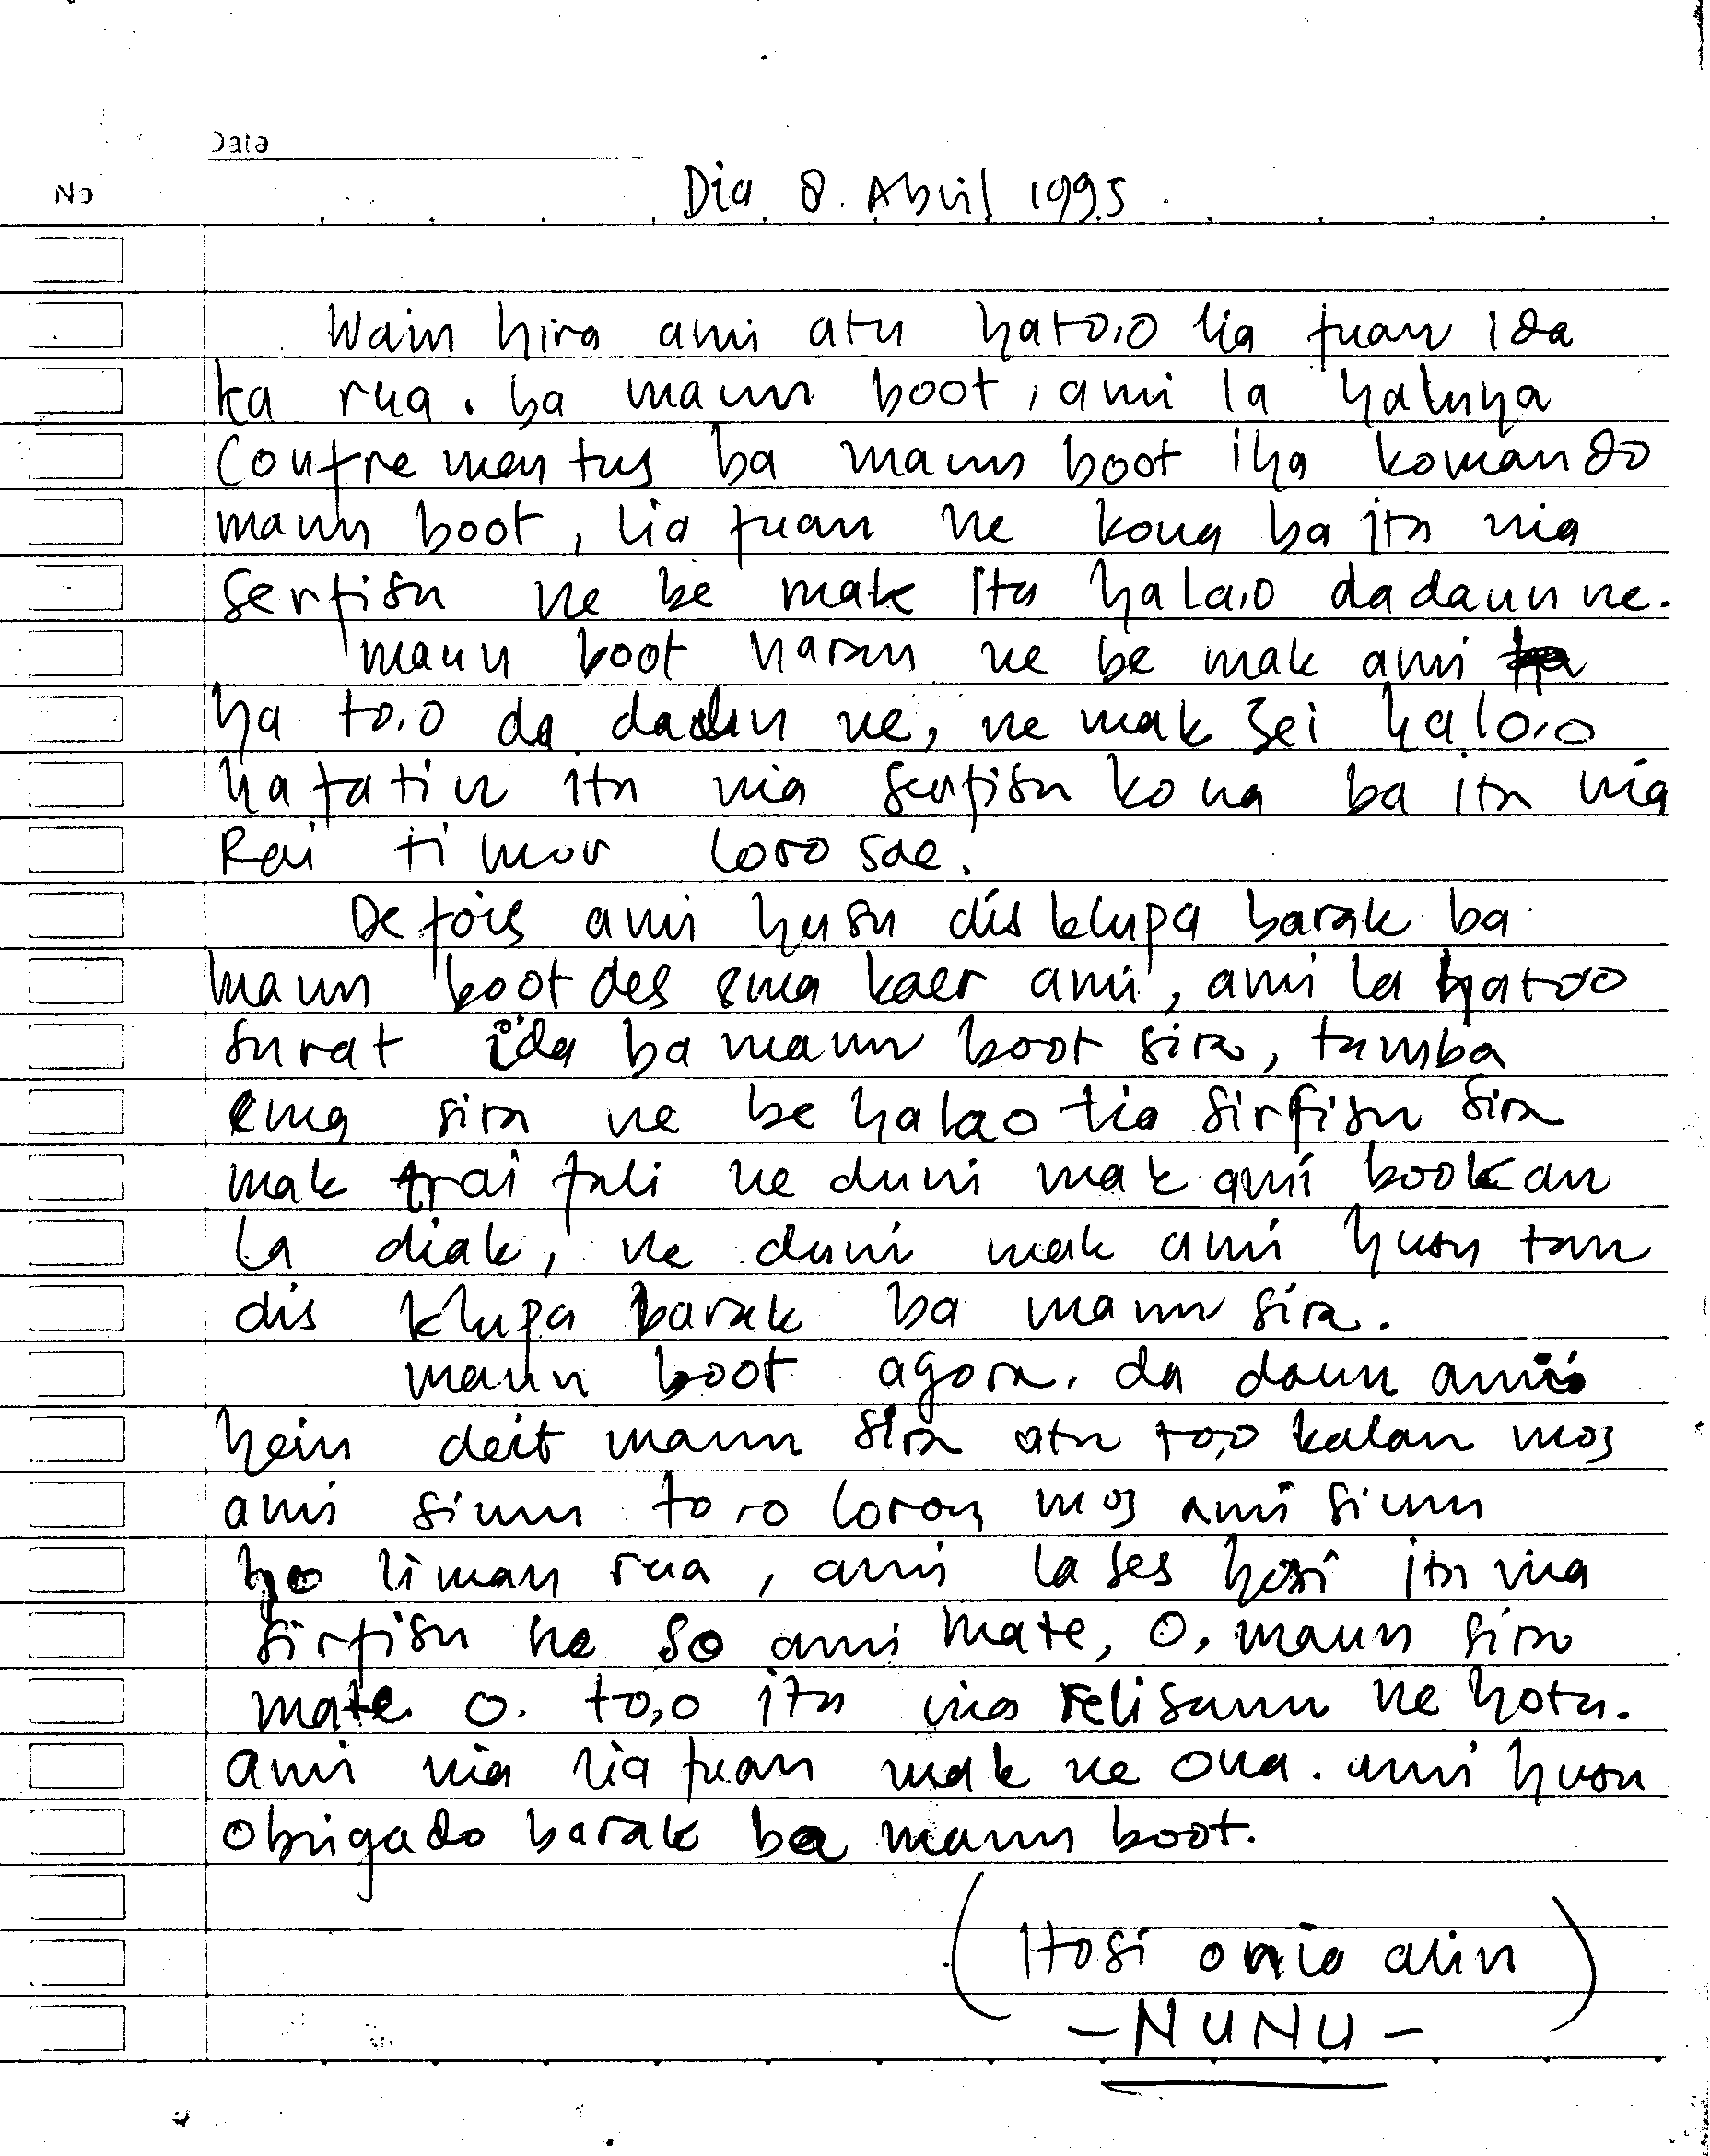 Data
No
Dia 8. Abril 1995.
Wain hira ami atu hato,o lia fuan ida
ka rua. ba maun boot, ami la haluha
Confrementus ba maun boot iha komando
maun boot, lia fuan ne kona ba ita nia
serfisu ne be mak ita hala,o dadaun ne.
maun boot haran ne be mak ami
ha to,o da daun ne, ne mak sei halo,o
hafatin ita nia serfisu kona ba ita nia
Rai timor loro sae.
Defois ami husu dis klupa barak ba
maun boot des ema kaer ami, ami la hatoo
surat ida ba maun boot sira, tumba
ema sira ne be halao tia sirfisu sira
mak frai fali ne duni mak ami bookan
la diak, ne duni mak ami husu tan
dis klupa barak ba maun sira.
maun boot agora. da daun ami
hein deit maun sira atu to,o kalan mos
ami simu to ro loron mos ami simu
ho liman rua, ami la ses hosi ita nia
sirfisu ne so ami mate, o, maun sira
mate o. to,o ita nia felisaun ne hotu.
Ami nia lia fuan mak ne ona. ami husu
obrigado barak ba maun boot.
(Hosi o nia alin)
-NUNU-